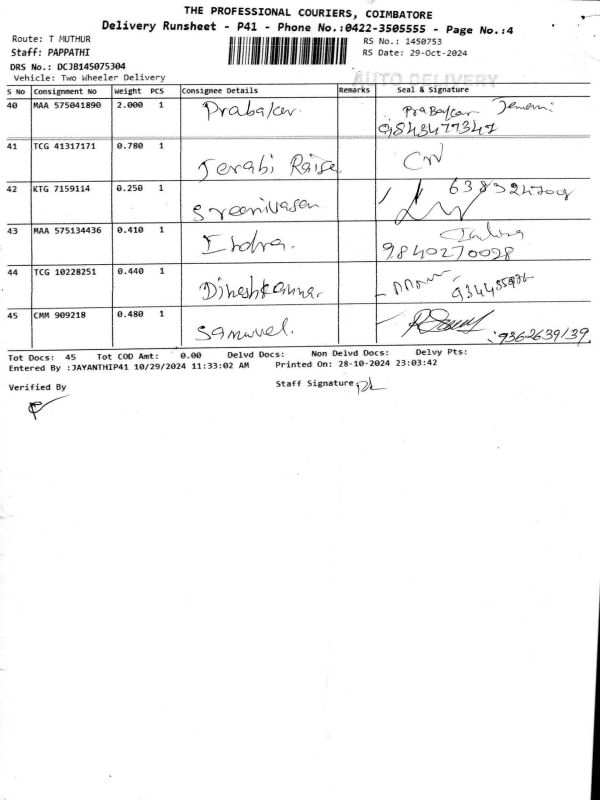 THE PROFESSIONAL COURIERS, COIMBATORE
Delivery Runsheet - P41 - Phone No.:0422-3505555 - Page No.:4
Route: T MUTHUR
RS No.: 1450753
Staff: PAPPATHI
RS Date: 29-Oct-2024
DRS No.: DCJB145075304
AUTO DELIVERY
Vehicle: Two Wheeler Delivery
S No Consignment No Weight PCS Consignee Details Remarks Seal & Signature
40 MAA 575041890 2.000 1 Prabakar Prabakar
9843477347
41 TCG 41317171 0.780 1 Jerabi Raise
42 KTG 7159114 0.250 1 Sreenivasan
43 MAA 575134436 0.410 1 Indra.
9840270098
44 TCG 10228251 0.440 1 Dineshkannar
45 CMM 909218 0.480 1 Samuvel. 9362639139
Tot Docs: 45 Tot COD Amt: 0.00 Delvd Docs: Non Delvd Docs: Delvy Pts:
Entered By :JAYANTHIP41 10/29/2024 11:33:02 AM Printed On: 28-10-2024 23:03:42
Verified By Staff Signature